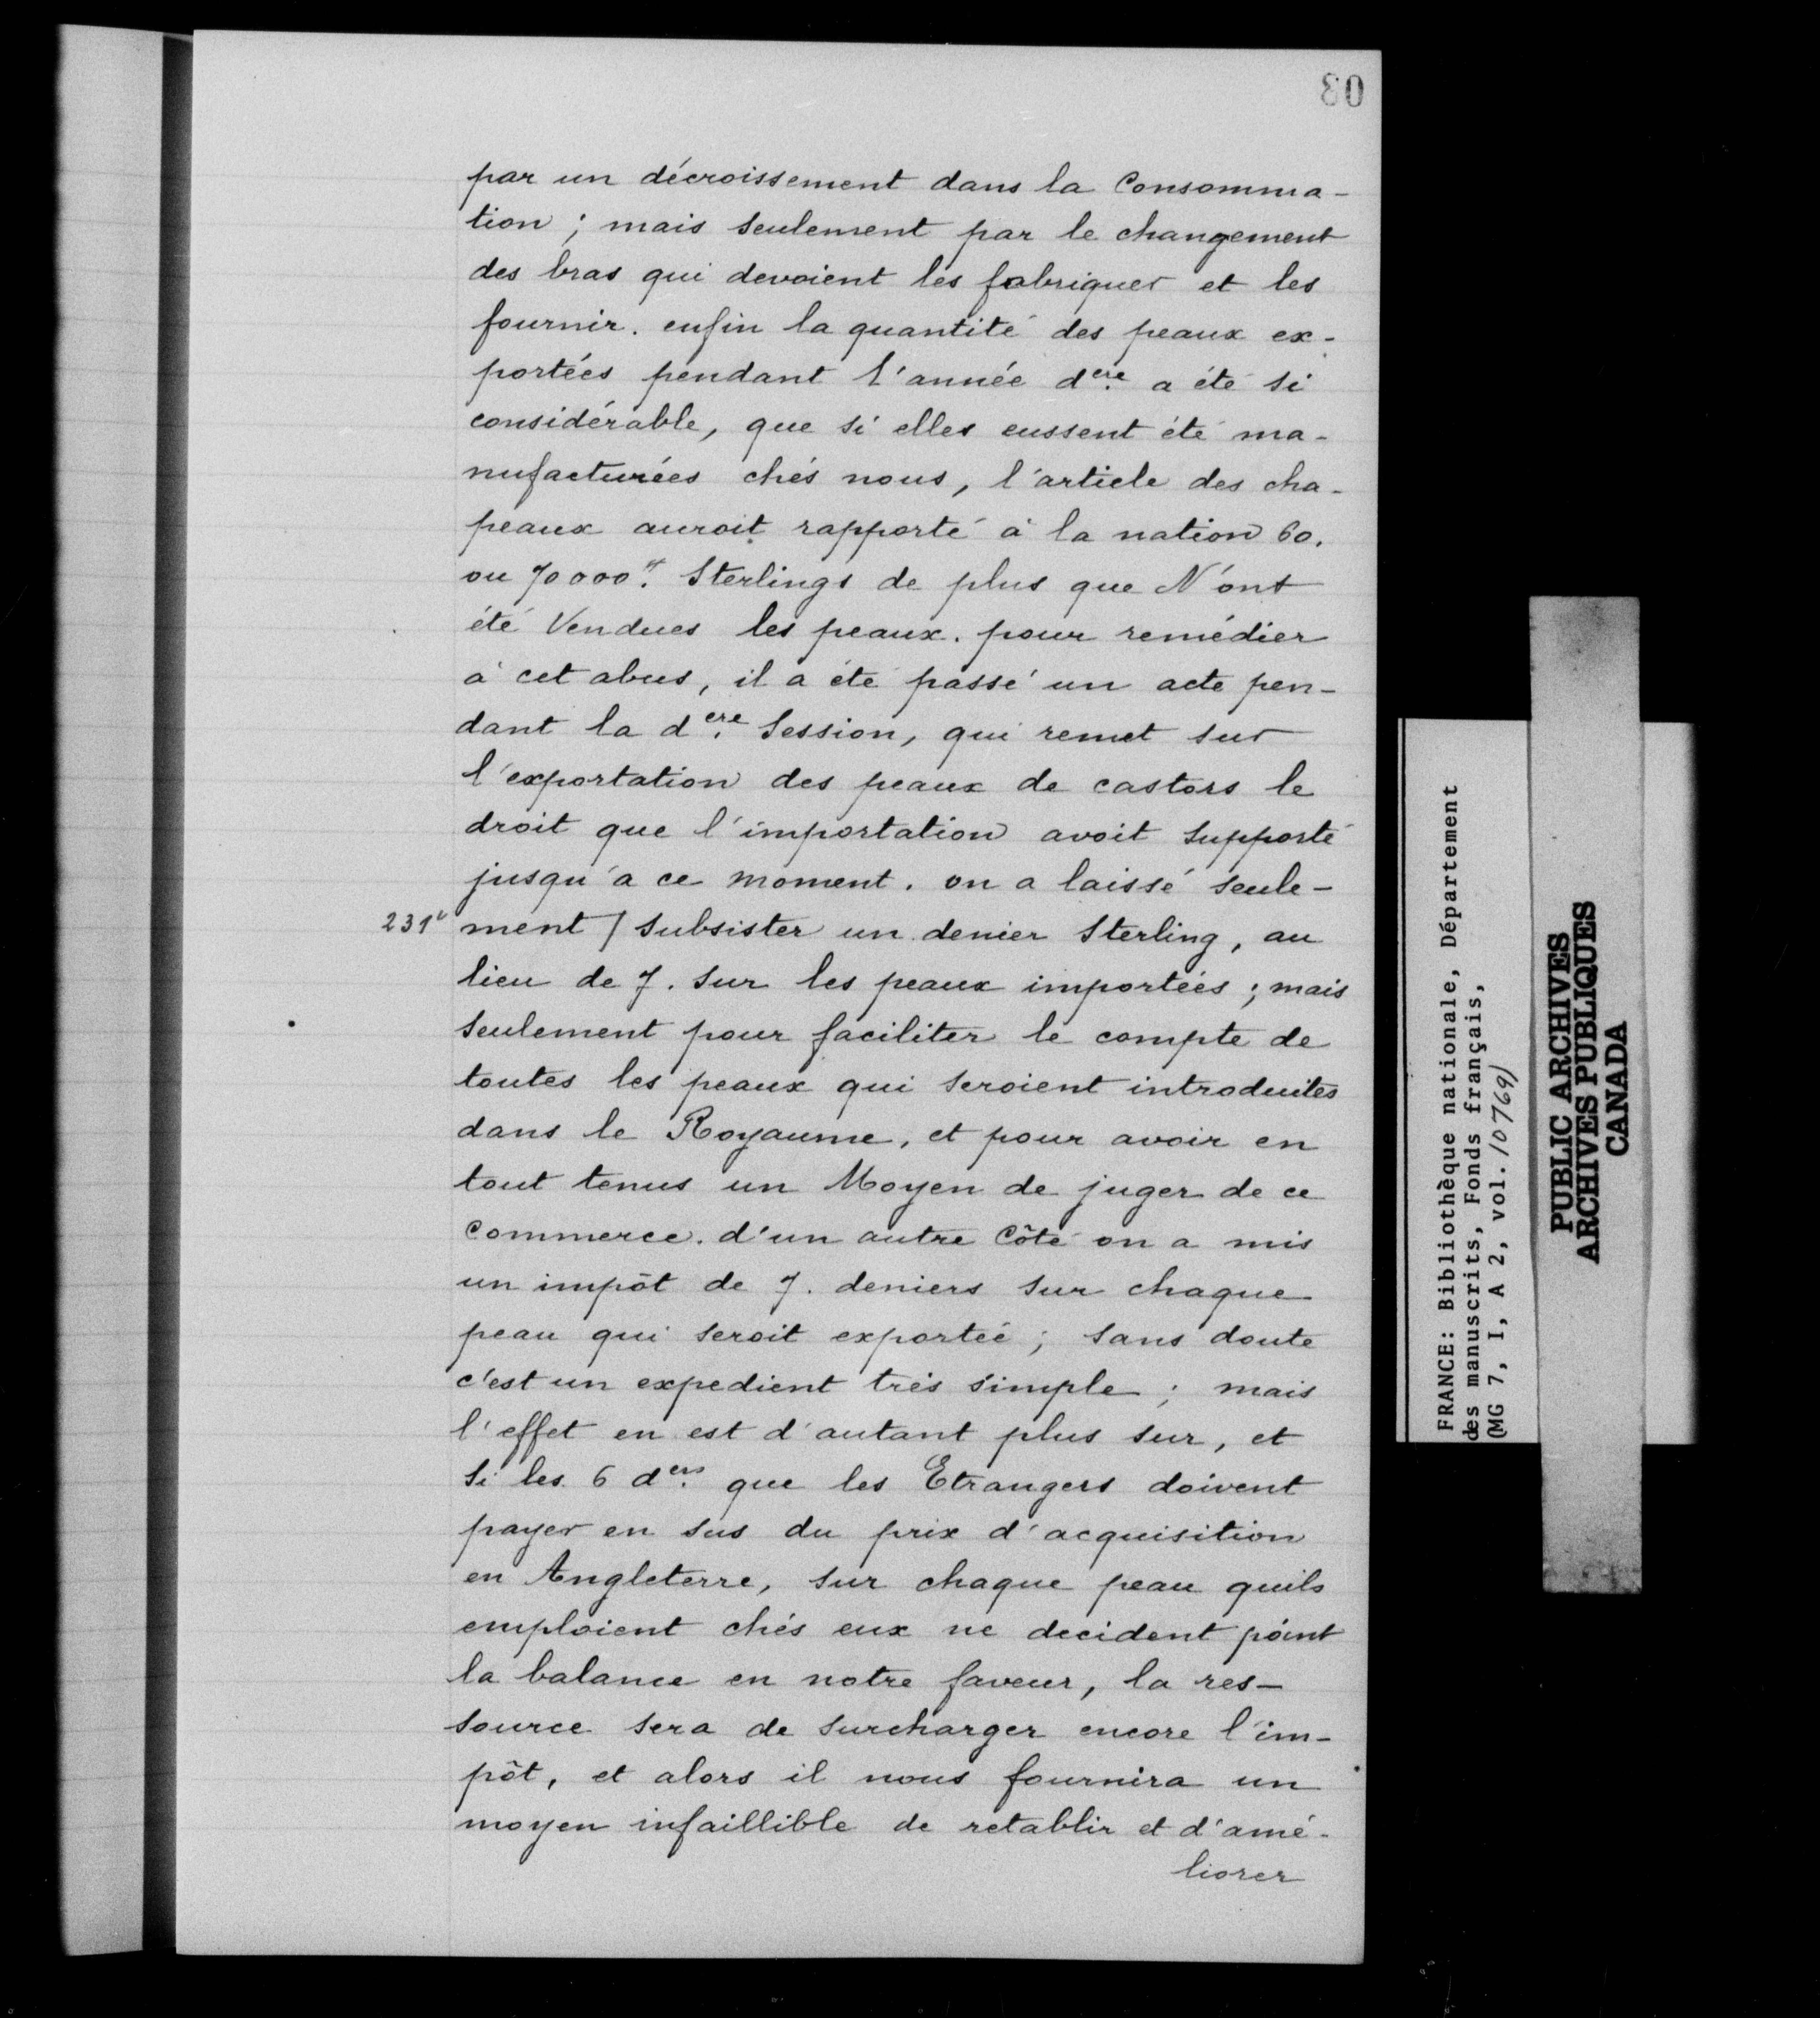 80
par un décroissement dans la Consomma-
tion ; mais seulement par le changement
des bras qui devoient les fabriquer et les
fournir. enfin la quantité des peaux ex-
portées pendant l'année dere a été si
considérable, que si elles eussent été ma-
nufacturées chés nous, l'article des cha-
peaux auroit rapporté à la nation 60.
ou 70000# Sterlings de plus que N'ont
été Vendues les peaux. pour remédier
à cet abus, il a été passé un acte pen-
dant la dere Session, qui remet sur
l'exportation des peaux de castors le
droit que l'importation avoit supporté
jusqu'à ce moment. on a laissé seule-
231v ment / subsister un denier Sterling, au
lieu de 7. sur les peaux importées ; mais
seulement pour faciliter le compte de
toutes les peaux qui seroient introduites
dans le Royaume, et pour avoir en
tout tems un Moyen de juger de ce
commerce. d'un autre Côté on a mis
un impôt de 7. deniers sur chaque
peau qui seroit exportée ; sans doute
c'est un expedient trés simple ; mais
l'effet en est d'autant plus sur, et
si les 6 ders que les Etrangers doivent
payer en sus du prix d'acquisition
en Angleterre, sur chaque peau quils
emploient chés eux ne decident point
la balance en notre faveur, la res-
source sera de surcharger encore l'im-
pôt, et alors il nous fournira un
moyen infaillible de retablir et d'amé-
liorer
FRANCE: Bibliothèque nationale, Département
des manuscrits, Fonds français,
(MG 7, I, A 2, vol. 10769)
PUBLIC ARCHIVES
ARCHIVES PUBLIQUES
CANADA